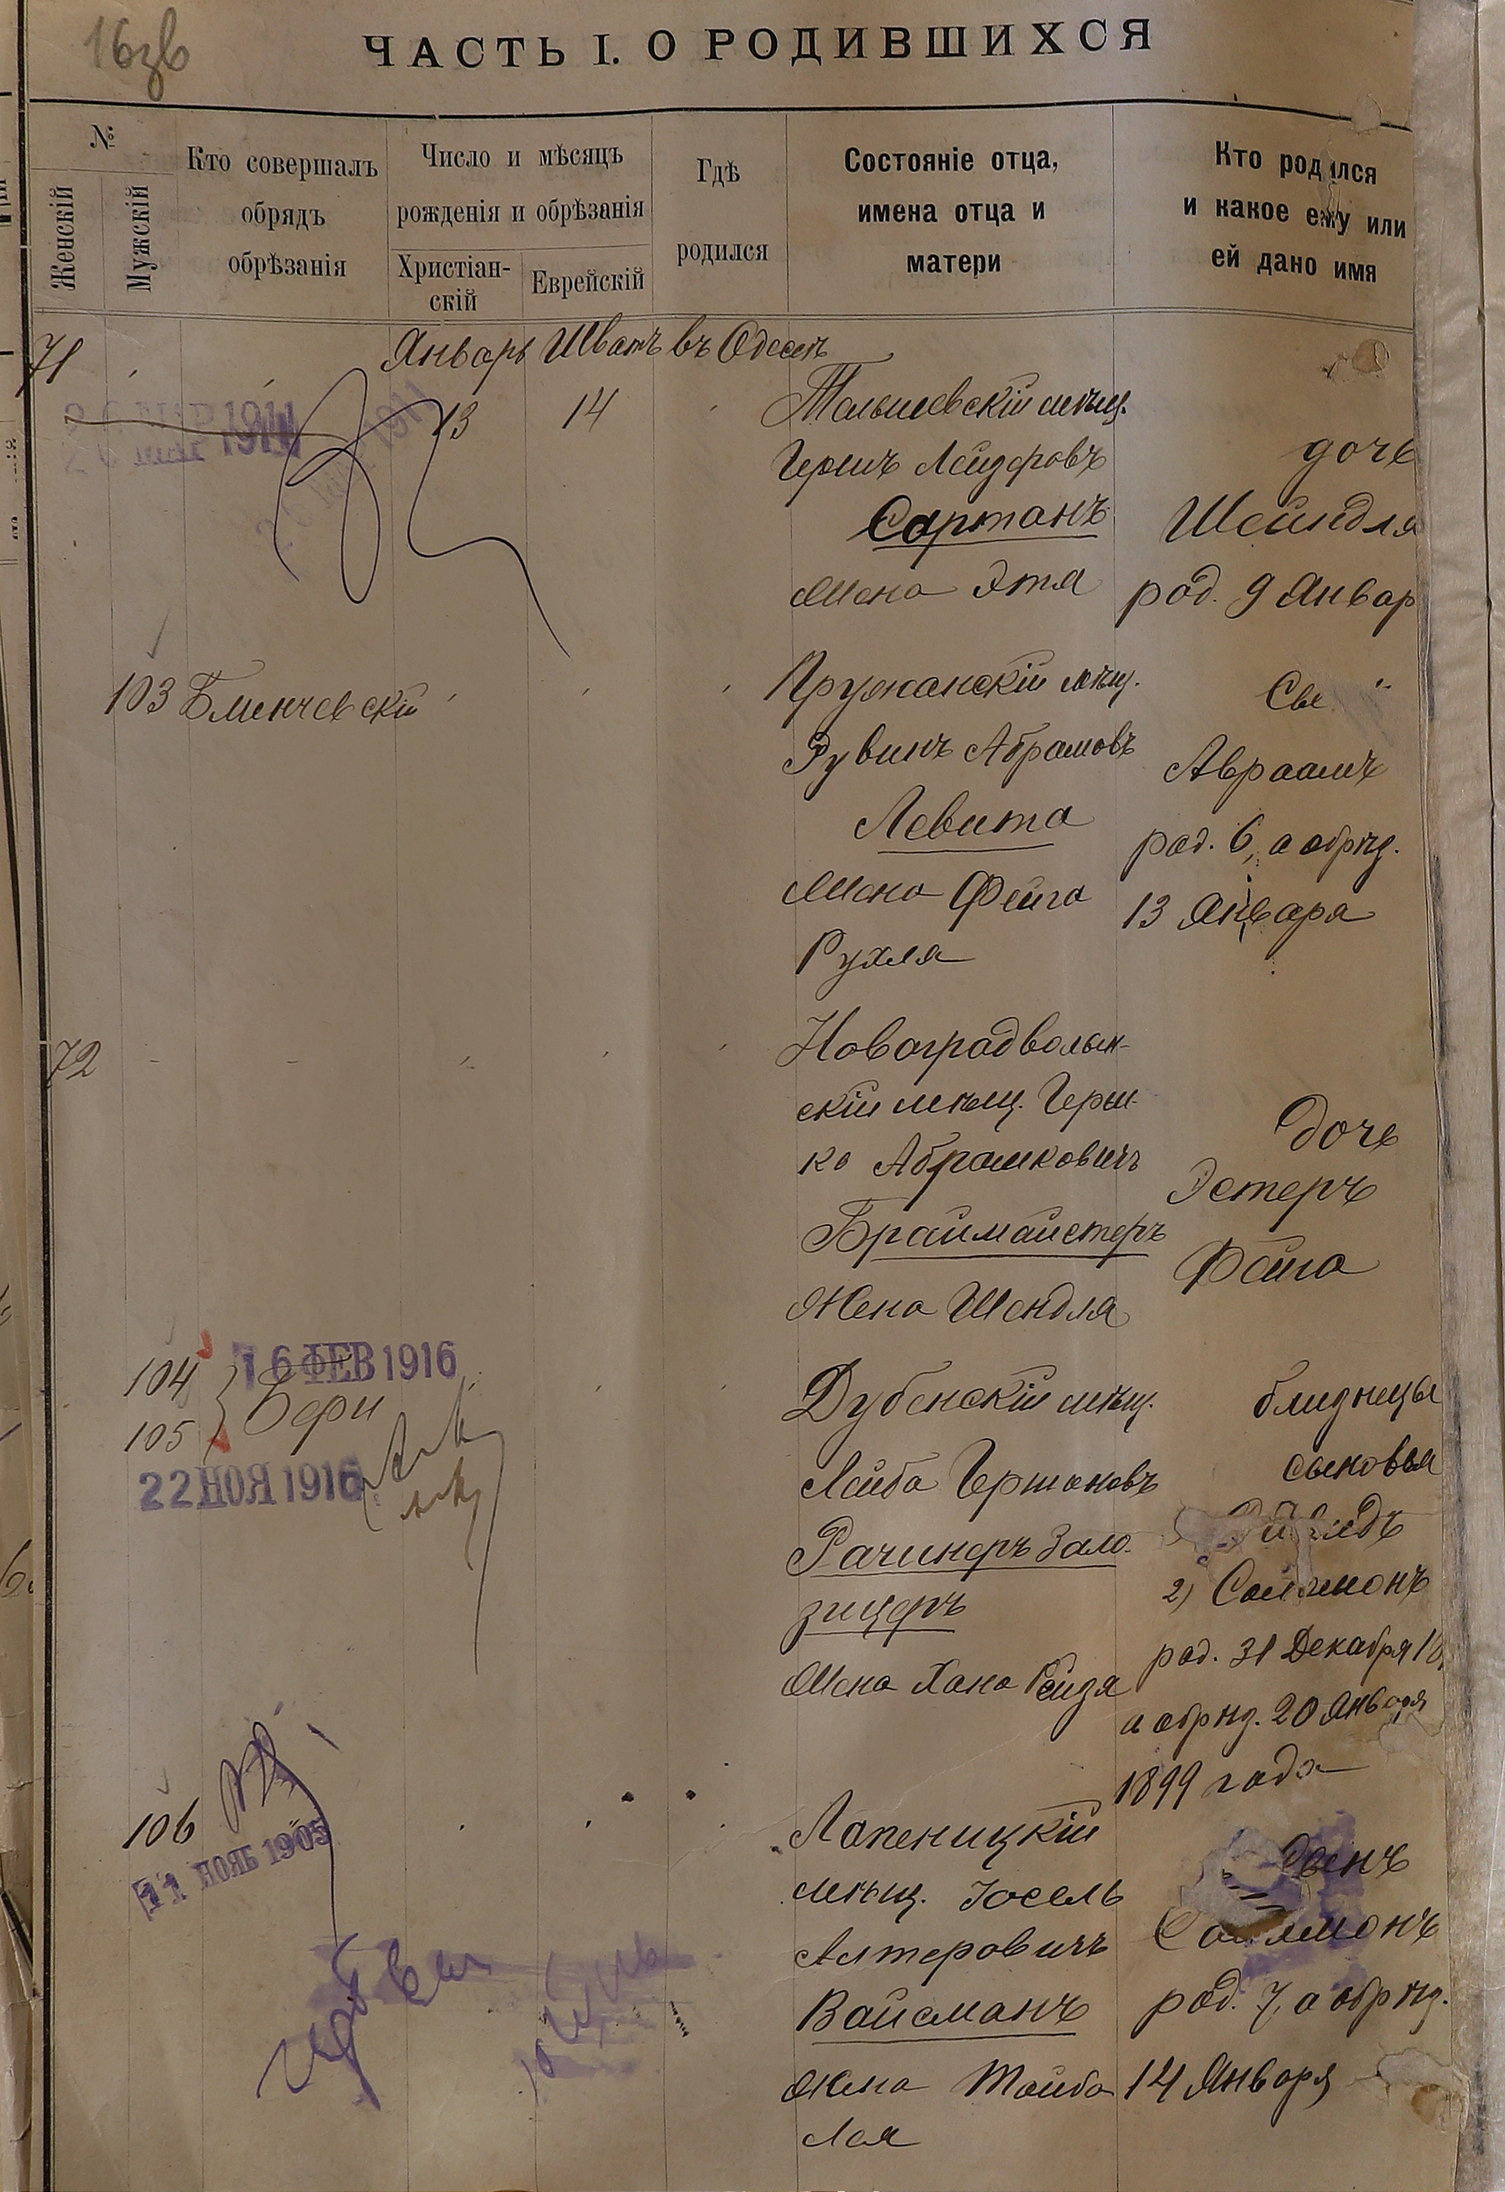 16зв
ЧАСТЬ I. О РОДИВШИХСЯ
№
Женскій
Мужскій
Кто совершалъ
обрядъ
обрѣзанія
Число и мѣсяцъ
рожденія и обрѣзанія
Христіан-
скій
Еврейскій
Гдѣ
родился
Состояніе отца,
имена отца и
матери
Кто родился
и какое ему или
ей дано имя
71
Январь Шватъ въ Одессѣ
13 14
Тальневскій мѣщ.
Гершъ Лейзеровъ
Сартанъ
Жена Этя
дочь
Шейндля
род. 9 Январ
1911
103 Блинчевскій
Пружанскій мѣщ.
Рувинъ Абрамовъ
Левита
Жена Фейга
Рухля
Сын
Авраамъ
род. 6, а обрѣз.
13 Января
72
Новоградволын-
скій мѣщ. Герш-
ко Абрамковичъ
Браймайстеръ
Жена Шендля
дочь
Эстеръ
Фейга
104
105
16 ФЕВ 1916
Бери
22 НОЯ 1916
Дубенскій мѣщ.
Лейба Гершоновъ
Рачинеръ Зало-
зицеръ
Жена Хана Рейзя
близнецы
сыновья
2) Соломонъ
род. 31 Декабря 18
а обрѣз. 20 Января
1899 года
106
11 НОЯБ 1905
Лопеницкій
мѣщ. Іосель
Алтеровичъ
Вайсманъ
Жена Тойба
Лея
Соломонъ
род. 7, а обрѣз.
14 Января